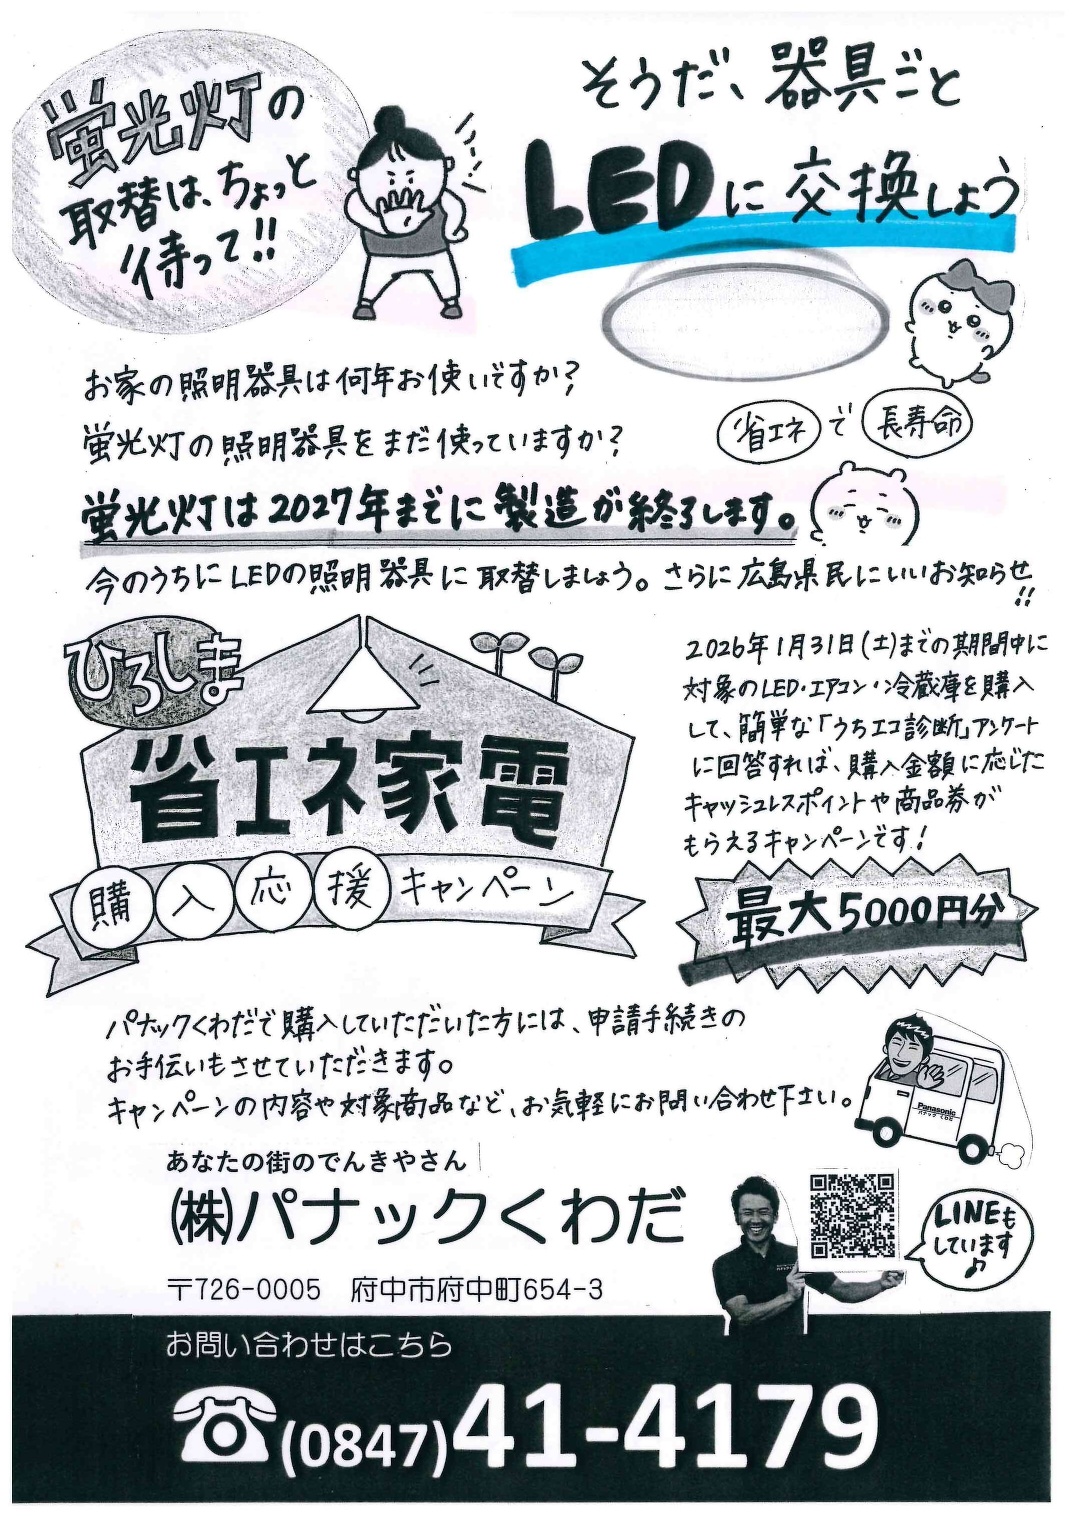 蛍光灯の
取替は、ちょっと
待って!!
そうだ、器具ごと
LEDに交換しよう
お家の照明器具は何年お使いですか?
蛍光灯の照明器具をまだ使っていますか?
省エネで長寿命
蛍光灯は2027年までに製造が終了します。
今のうちにLEDの照明器具に取替しましょう。さらに広島県民にいいお知らせ
!!
ひろしま
省エネ家電
購入応援キャンペーン
2026年1月31日(土)までの期間中に
対象のLED・エアコン・冷蔵庫を購入
して、簡単な「うちエコ診断」アンケート
に回答すれば、購入金額に応じた
キャッシュレスポイントや商品券が
もらえるキャンペーンです!
最大5000円分
パナックくわだで購入していただいた方には、申請手続きの
お手伝いもさせていただきます。
キャンペーンの内容や対象商品など、お気軽にお問い合わせ下さい。
Panasonic
パナックくわだ
あなたの街のでんきやさん
㈱パナックくわだ
〒726-0005 府中市府中町654-3
LINEも
しています
♪
お問い合わせはこちら
(0847)41-4179